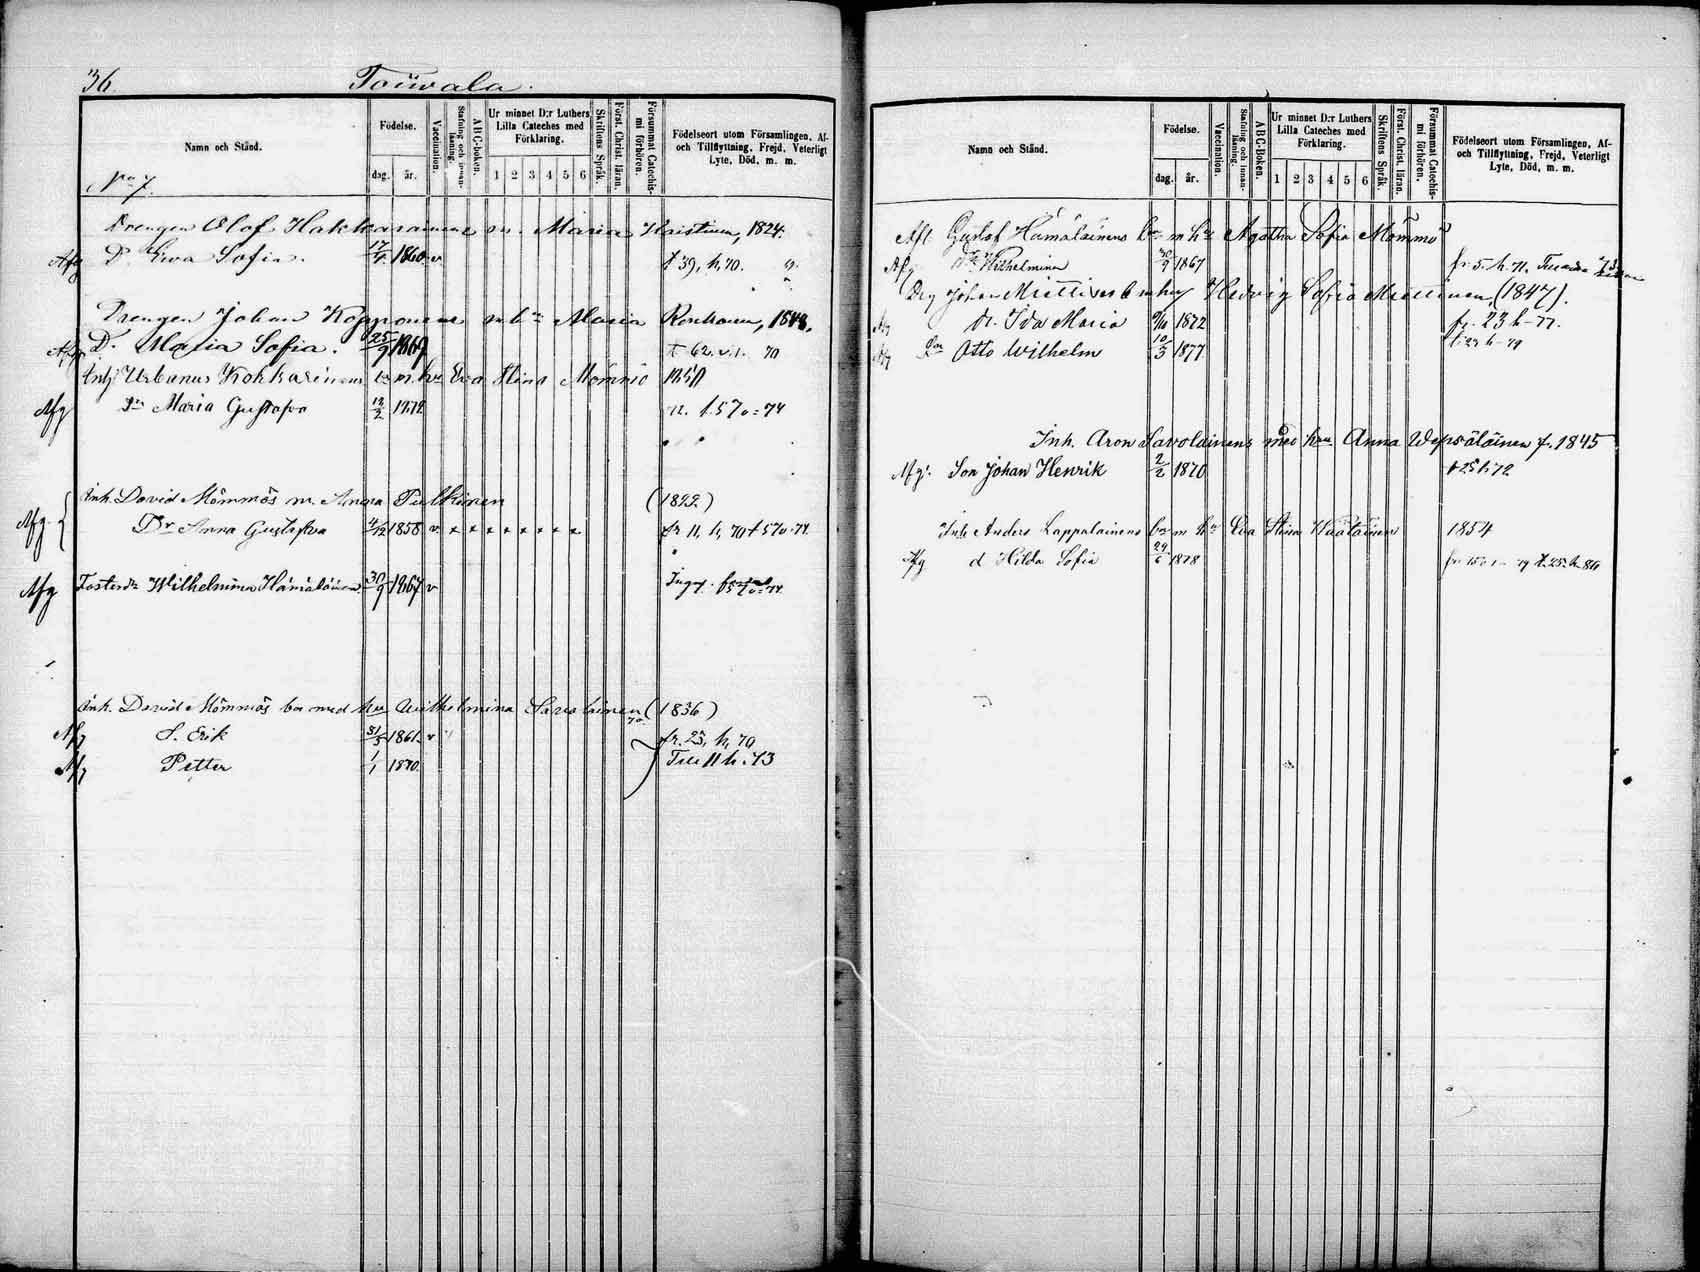 36.
Touwala.
Namn och Stånd.
Födelse.
dag.
år.
Vaccination.
Stafning och innan-läsning.
ABC-boken.
Ur minnet D:r Luthers Lilla Cateches med Förklaring.
1 2 3 4 5 6
Skriftens Språk.
Först. Christ. läran.
Försummat Catechis-mi förhören.
Födelseort utom Församlingen, Af- och Tillflyttning, Frejd, Veterligt Lyte, Död, m. m.
No 7.
Drengen Olof Hakkarainens m. Maria Kristina, 1824.
Afg D. Ewa Sofia. 17/4 1860 v t 39, h, 70.
Drengen Johan Kopponens m h Maria Ronkanen, 1848.
Afg D. Maria Sofia. 25/9 1869 t 62. v. 1. 70
Inh Urbanus Kokkarinens bn m. hu Eva Stina Mömmö 1850
Afg Dr Maria Gustafva 12/2 1872 12. t 570 = 74
Inh. David Mömmös m. Anna Tulkinen (1822.)
Afg. Dr Anna Gustafva 4/12 1858 v. x x x x x x x x fr 11, h, 70 t 570 = 74
Afg Fosterdr Wilhelmina Hämäläinen 30/9 1867 v Ingy. t 570 = 74
Inh. David Mömmös bn med hu Wilhelmina Savolainen (1836)
Afg S. Erik 31/5 1861. v fr. 23, h, 70
Afg Petter 1/1 1870. Till 11 h. 73
Namn och Stånd.
Födelse.
dag.
år.
Vaccination.
Stafning och innan-läsning.
ABC-Boken.
Ur minnet D:r Luthers Lilla Cateches med Förklaring.
1 2 3 4 5 6
Skriftens Språk.
Först. Christ. läran.
Försummat Catechis-mi förhören.
Födelseort utom Församlingen, Af- och Tillflyttning, Frejd, Veterligt Lyte, Död, m. m.
Afl. Gustaf Hämäläinens bn m hu Agatha Sofia Mömmö
Afg Dr Wilhelmina 30/9 1867 fr. 5. h 71.
Drg Johan Miettinens b m hu Hedvig Sofia Miettinen (1847).
Afg dr. Ida Maria 1872 fr. 23 h - 77.
Afg Son Otto Wilhelm 10/3 1877. t 23 h - 79
Inh. Aron Savolainens med hru Anna Wepsäläinen f. 1845
Afg. Son Johan Henrik 2/2 1870 t 25 h 72
Inh Anders Lappalainens bn m hu Eva Stina Väätäinen 1854
Afg d Hilda Sofia 29/6 1878